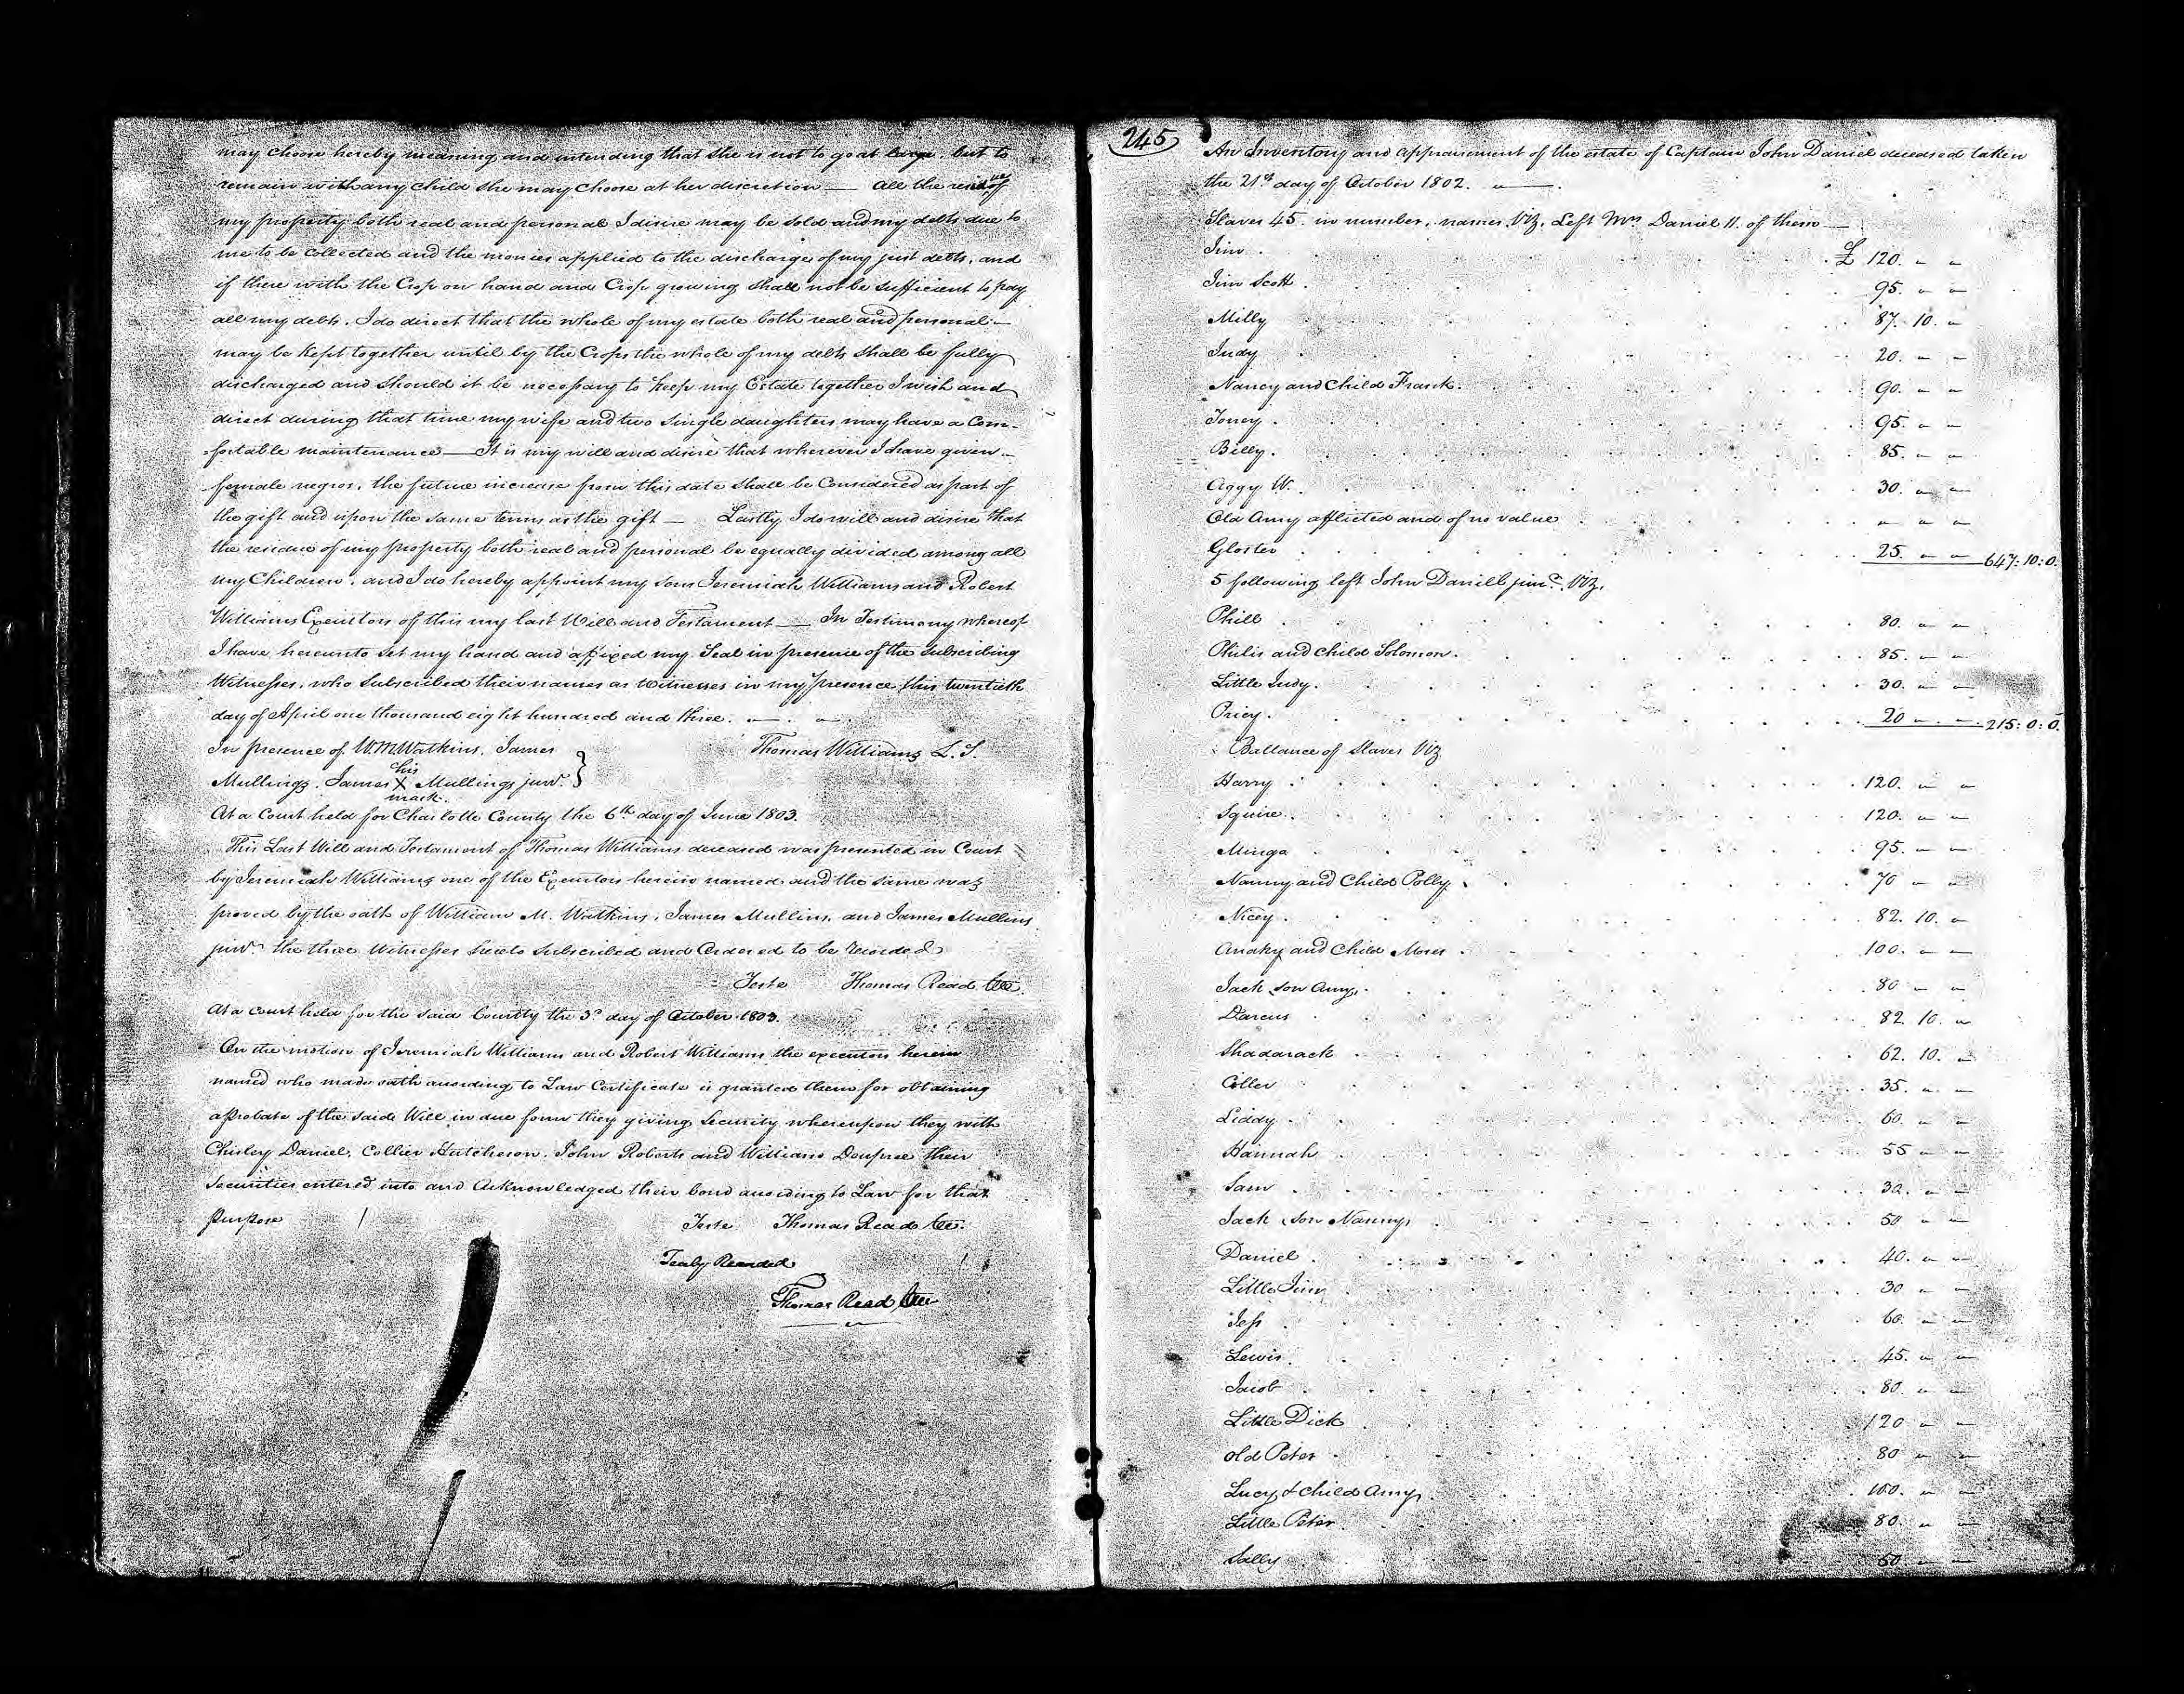 may choose hereby meaning and intending that she is not to go at large, but to
remain with any child she may choose at her discretion — all the residue of
my property both real and personal I desire may be sold and my debts due to
me to be Collected and the monies applied to the discharge of my just debts, and
if there with the Crop on hand and Crop growing shall not be sufficient to pay
all my debts, I do direct that the whole of my estate both real and personal —
may be Kept together until by the Crops the whole of my debts shall be fully
discharged and should it be necessary to keep my Estate together I wish and
direct during that time my wife and two single daughters may have a Com-
-fortable maintenance — It is my will and desire that wherever I have given —
female negros, the future increase from this date shall be Considered as part of
the gift and upon the same terms as the gift — Lastly, I do will and desire that
the residue of my property both real and personal be equally divided among all
my Children, and I do hereby appoint my sons Jeremiah Williams and Robert
Williams Executors of this my last Will and Testament — In Testimony whereof
I have hereunto set my hand and affixed my Seal in presence of the subscribing
Witnesses, who Subscribed their names as witnesses in my presence this twentieth
day of April one thousand eight hundred and three.
In presence of W. M. Watkins, James } Thomas Williams L. S.
his
Mullings, James X Mullings junr.
mark.
At a Court held for Charlotte County the 6th day of June 1803.
This Last Will and Testament of Thomas Williams deceased was presented in Court
by Jeremiah Williams one of the Executors herein named and the same was
proved by the oath of William M. Watkins, James Mullins, and James Mullins
junr. the three Witnesses hereto subscribed and Ordered to be recorded
Teste Thomas Read Clk.
At a court held for the said County the 3d day of October 1803.
On the motion of Jeremiah Williams and Robert Williams the executors herein
named who made oath according to Law Certificate is granted them for obtaining
a probate of the said Will in due form they giving Security whereupon they with
Chisley Daniel, Collier Hutcheson, John Roberts and William Doupree their
Securities entered into and Acknowledged their bond according to Law for that
purpose
Teste Thomas Read Clk.
Truly Recorded
Thomas Read Clk
245
An Inventory and appraisement of the estate of Captain John Daniel deceased taken
the 21st day of October 1802.
Slaves 45 in number, names, Viz. Left Mrs Daniel 11 of them —
Jim £ 120. " "
Jim Scott 95. " "
Milly 87. 10. "
Judy 20. " "
Nancy and Child Frank 90. " "
Toney 95. " "
Billy 85. " "
Aggy W. 30. " "
Old Amy afflicted and of no value " " "
Gloster 25. " " 647:10:0.
5 following left John Daniell junr. Viz.
Phill 80. " "
Philis and Child Solomon 85. " "
Little Judy 30. " "
Pricy 20 " " 215:0:0.
Ballance of Slaves Viz
Harry 120. " "
Squire 120. " "
Mingo 95. " "
Nanny and Child Polly 70 " "
Nicey 82. 10. "
Anaky and Child Moses 100. " "
Jack son Amy 80 " "
Darcus 82. 10. "
Shadarack 62. 10. "
Ciller 35. " "
Liddy 60. " "
Hannah 55 " "
Sam 30. " "
Jack son Nanny 50 " "
Daniel 40. " "
Little Jim 30 " "
Jess 60. " "
Lewis 45. " "
Jacob 80. " "
Little Dick 120 " "
old Peter 80 " "
Lucy & child Amy 100. " "
Little Peter 80. " "
Sally 50 " "